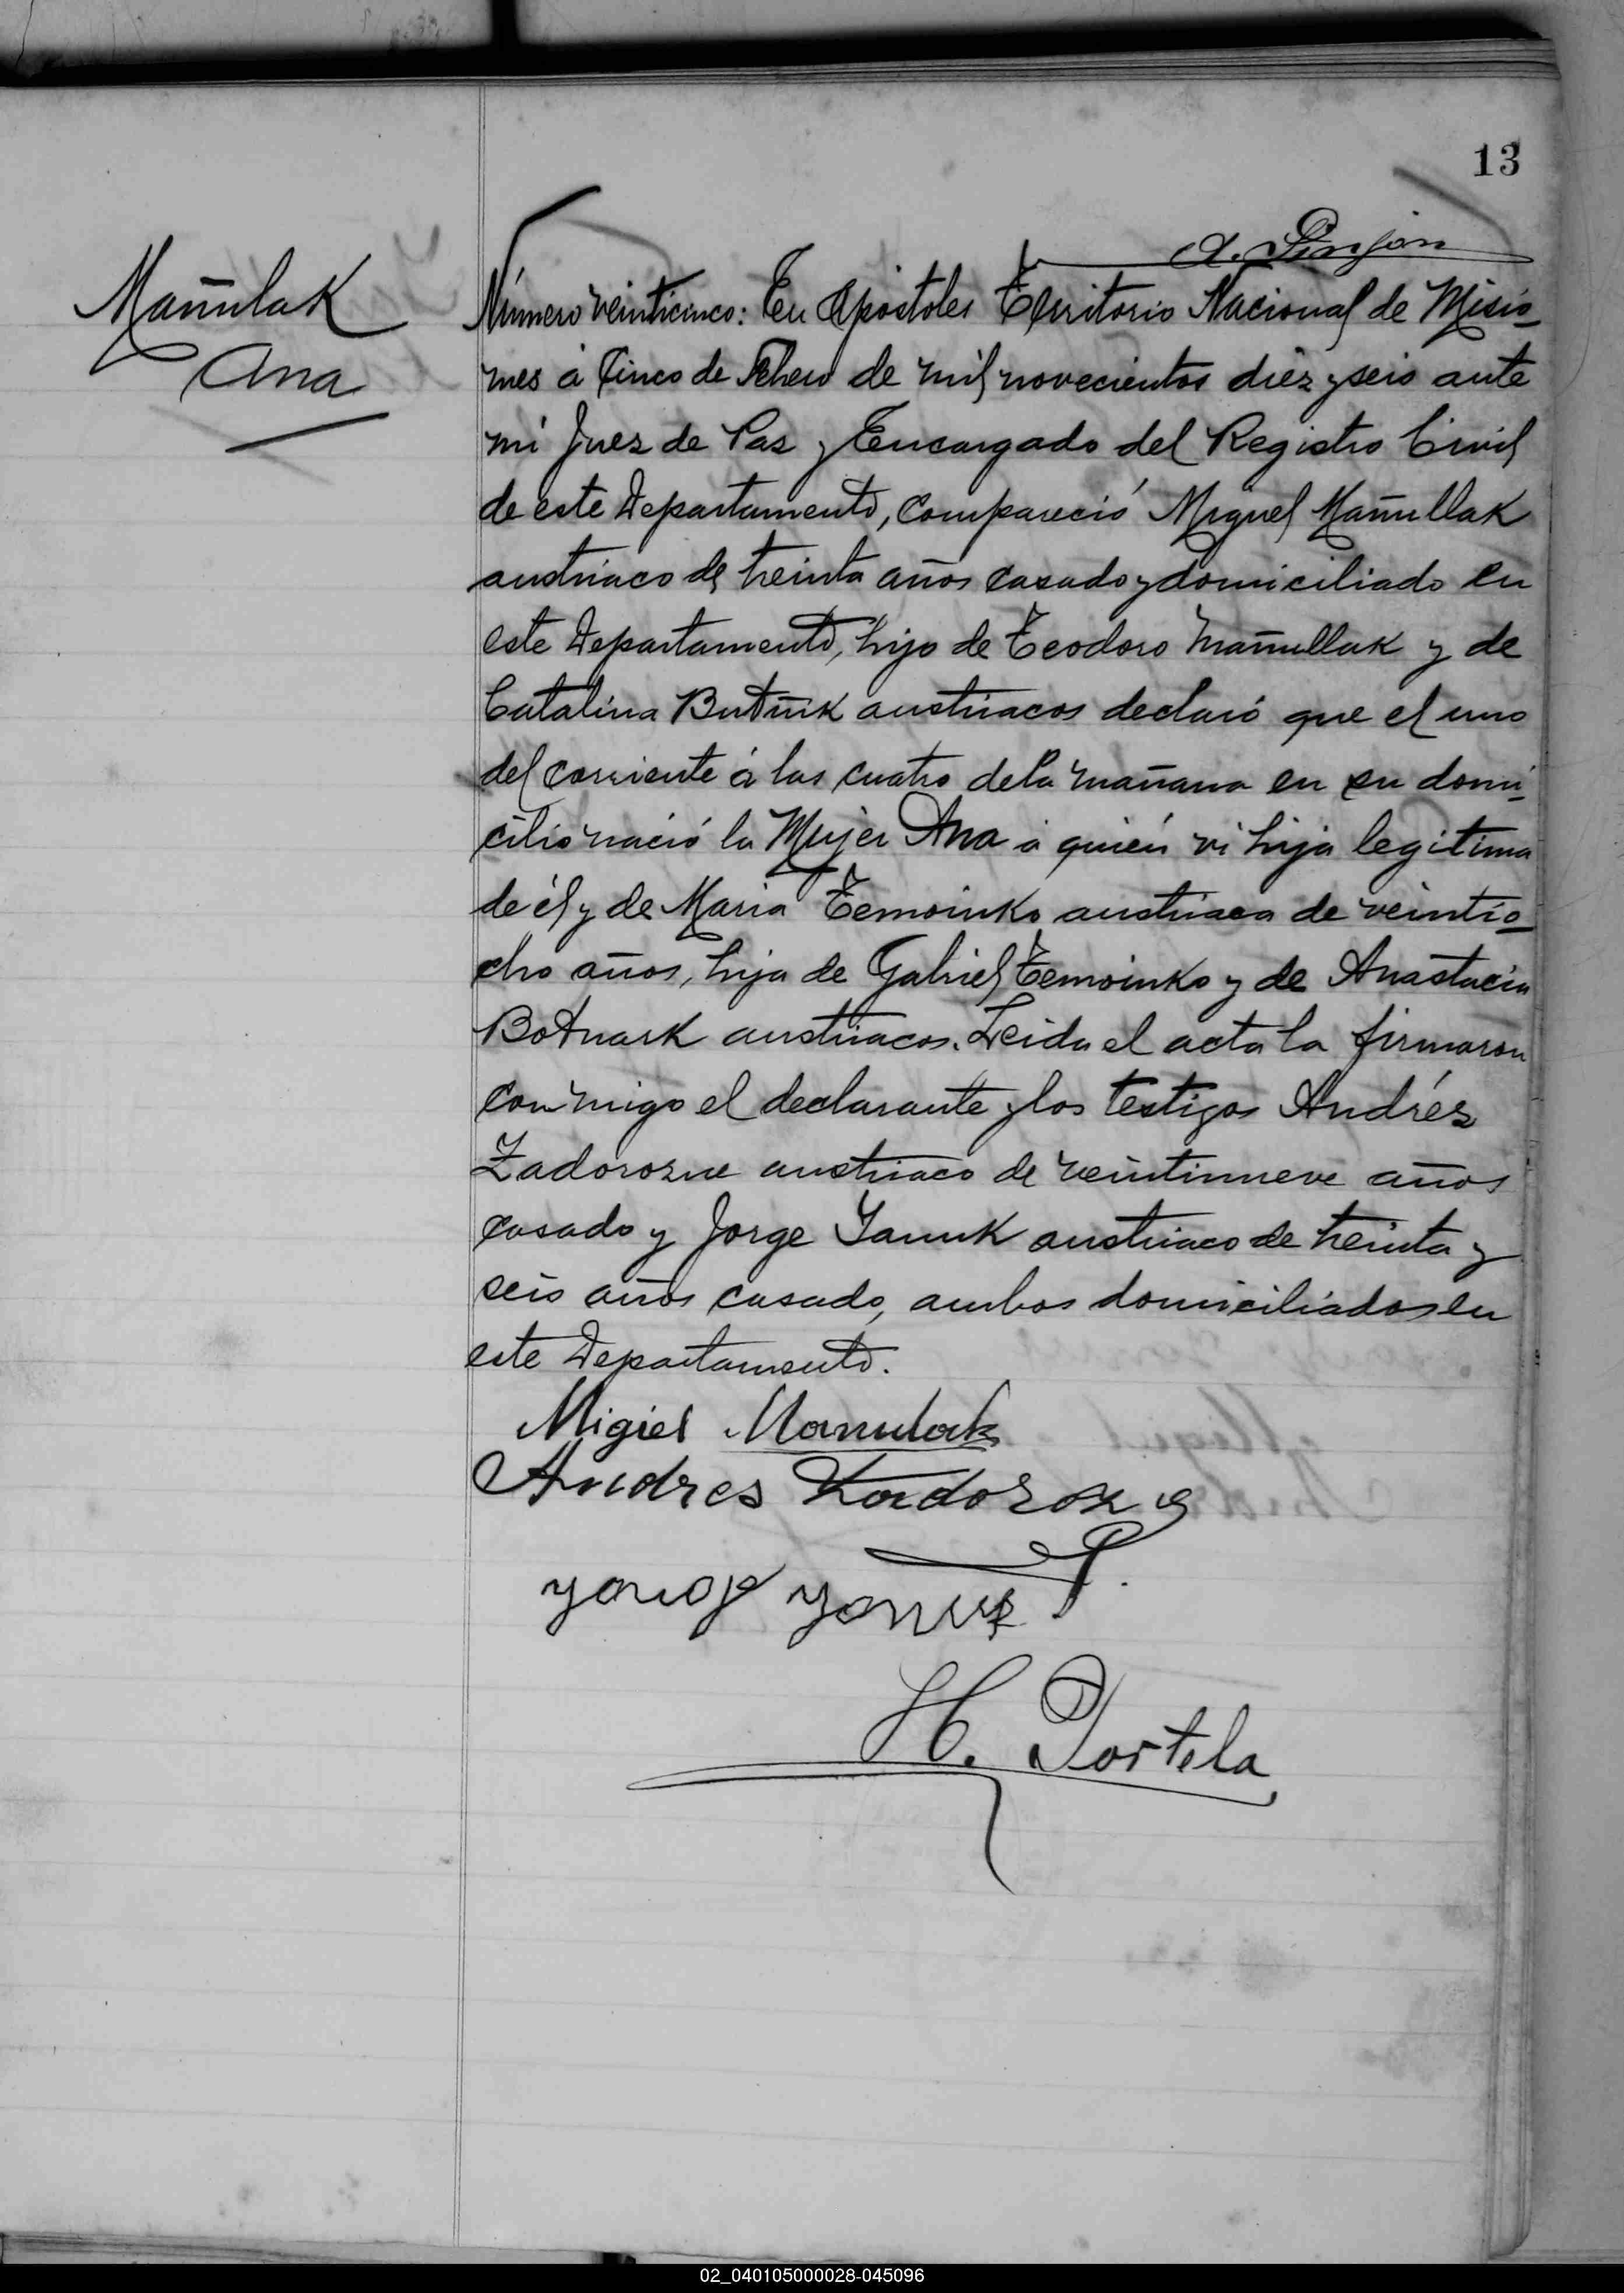 13
Mañulak
Ana
Número veinticinco: En Apóstoles Territorio Nacional de Misio-
nes á Cinco de Febero de mil novecientos diez y seis ante
mi Juez de Paz y Encargado del Registro Civil
de este Departamento, compareció Miguel Mañullak
austriaco de treinta años casado y domiciliado en
este Departamento, hijo de Teodoro Mañullak y de
Catalina austriacos declaró que el uno
del corriente á las cuatro de la mañana en su domi-
cilio nació la Mujer Ana á quién vi hija legitima
de él y de Maria Temoinko austriaca de veintio-
cho años, hija de Gabriel Temoinko y de Anastacia
Botnark austriacos. Leida el acta la firmaron
conmigo el declarante y los testigos Andrés
Zadorozne austriaco de veintinueve años
casado y Jorge Januk austriaco de treinta y
seis años casado, ambos domiciliados en
este Departamento.
Migiel Manulak
Andres
H. Portela
02_040105000028-045096